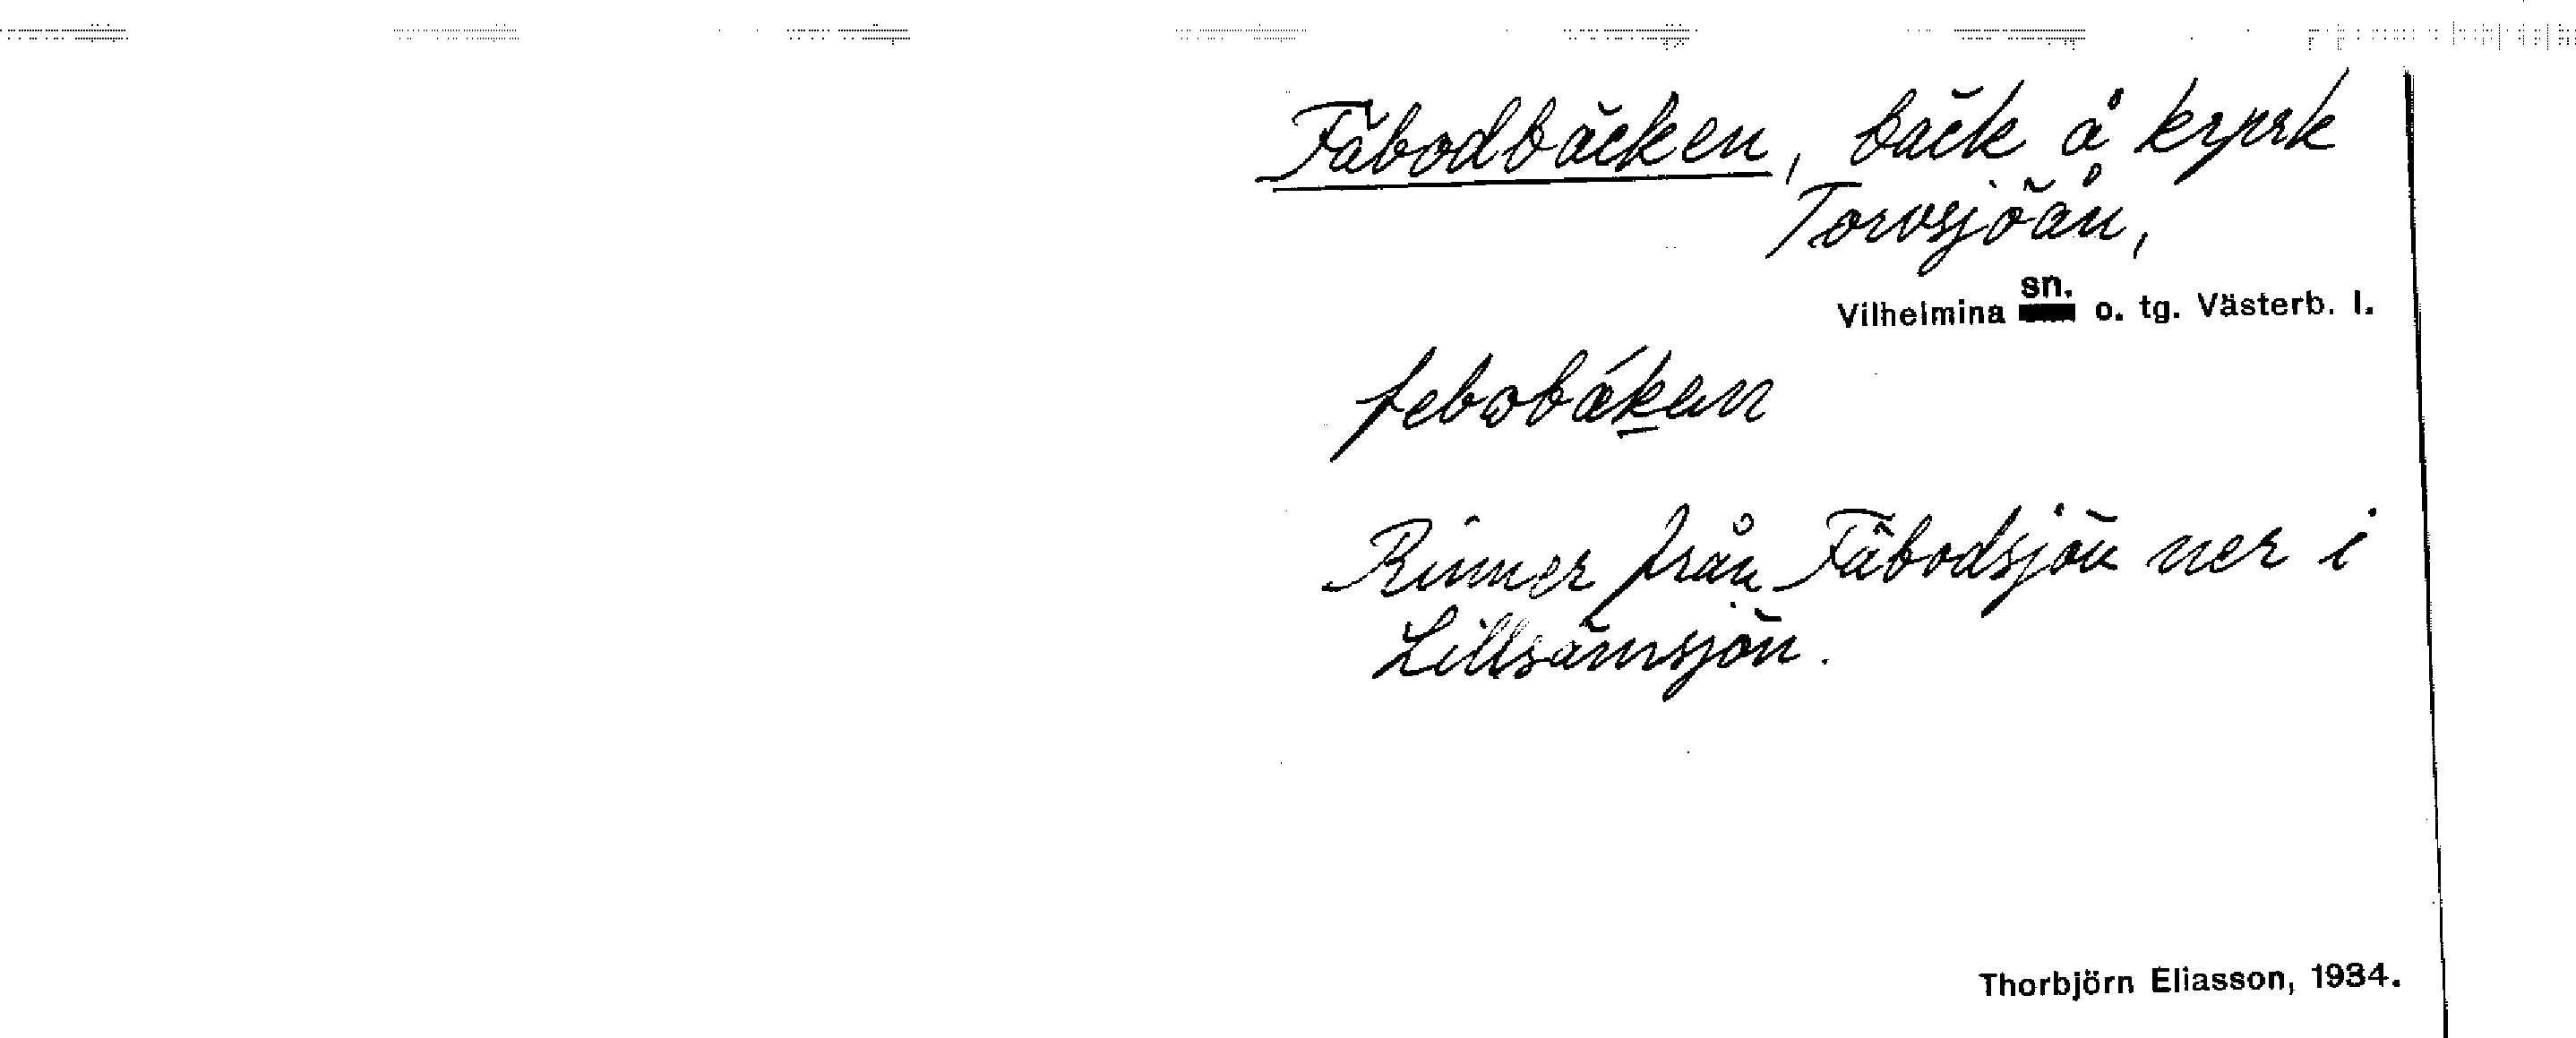 Fäbodbäcken, bäck å krprk
Torvsjöån,
Vilhelmina sn. o. tg. Västerb. l.
febobǽken
Rinner från Fäbodsjön ner i
Lillsämsjön.
Thorbjörn Eliasson, 1934.